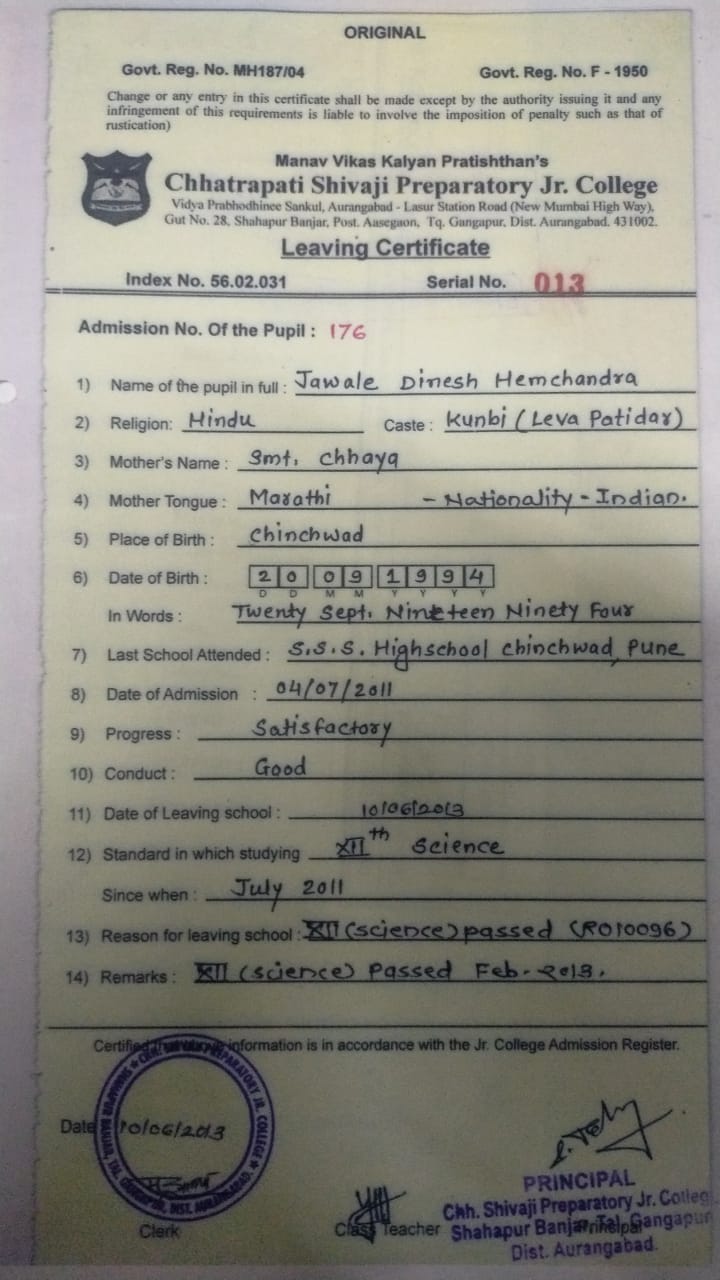 ORIGINAL
Govt. Reg. No. MH187/04 Govt. Reg. No. F - 1950
Change or any entry in this certificate shall be made except by the authority issuing it and any
infringement of this requirements is liable to involve the imposition of penalty such as that of
rustication)
Manav Vikas Kalyan Pratishthan's
Chhatrapati Shivaji Preparatory Jr. College
Vidya Prabhodhinee Sankul, Aurangabad - Lasur Station Road (New Mumbai High Way),
Gut No. 28, Shahapur Banjar, Post. Aasegaon, Tq. Gangapur, Dist. Aurangabad. 431002.
Leaving Certificate
Index No. 56.02.031 Serial No. 013
Admission No. Of the Pupil : 176
1) Name of the pupil in full : Jawale Dinesh Hemchandra
2) Religion: Hindu Caste : Kunbi (Leva Patidar)
3) Mother's Name : Smt. Chhaya
4) Mother Tongue : Marathi - Nationality - Indian.
5) Place of Birth : Chinchwad
6) Date of Birth : 20 09 1994
D D M M Y Y Y Y
In Words : Twenty Sept. Nineteen Ninety Four
7) Last School Attended : S.S.S. Highschool Chinchwad, Pune
8) Date of Admission : 04/07/2011
9) Progress : Satisfactory
10) Conduct : Good
11) Date of Leaving school : 10/06/2013
12) Standard in which studying XII th Science
Since when : July 2011
13) Reason for leaving school : XII (science) passed (R010096)
14) Remarks : XII (science) Passed Feb. 2013.
Certified information is in accordance with the Jr. College Admission Register.
Date 10/06/2013
PREPARATORY JR. COLLEGE ★ SHAHAPUR BANJAR, TAL. GANGAPUR, DIST. AURANGABAD. ★
Clerk Class Teacher Principal
PRINCIPAL
Chh. Shivaji Preparatory Jr. Colleg
Shahapur Banjar, Tal. Gangapur
Dist. Aurangabad.